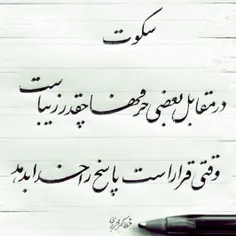 سکوت
در مقابل بعضی حرفها چقدر زیباست
وقتی قرار است پاسخ را خدا بدهد